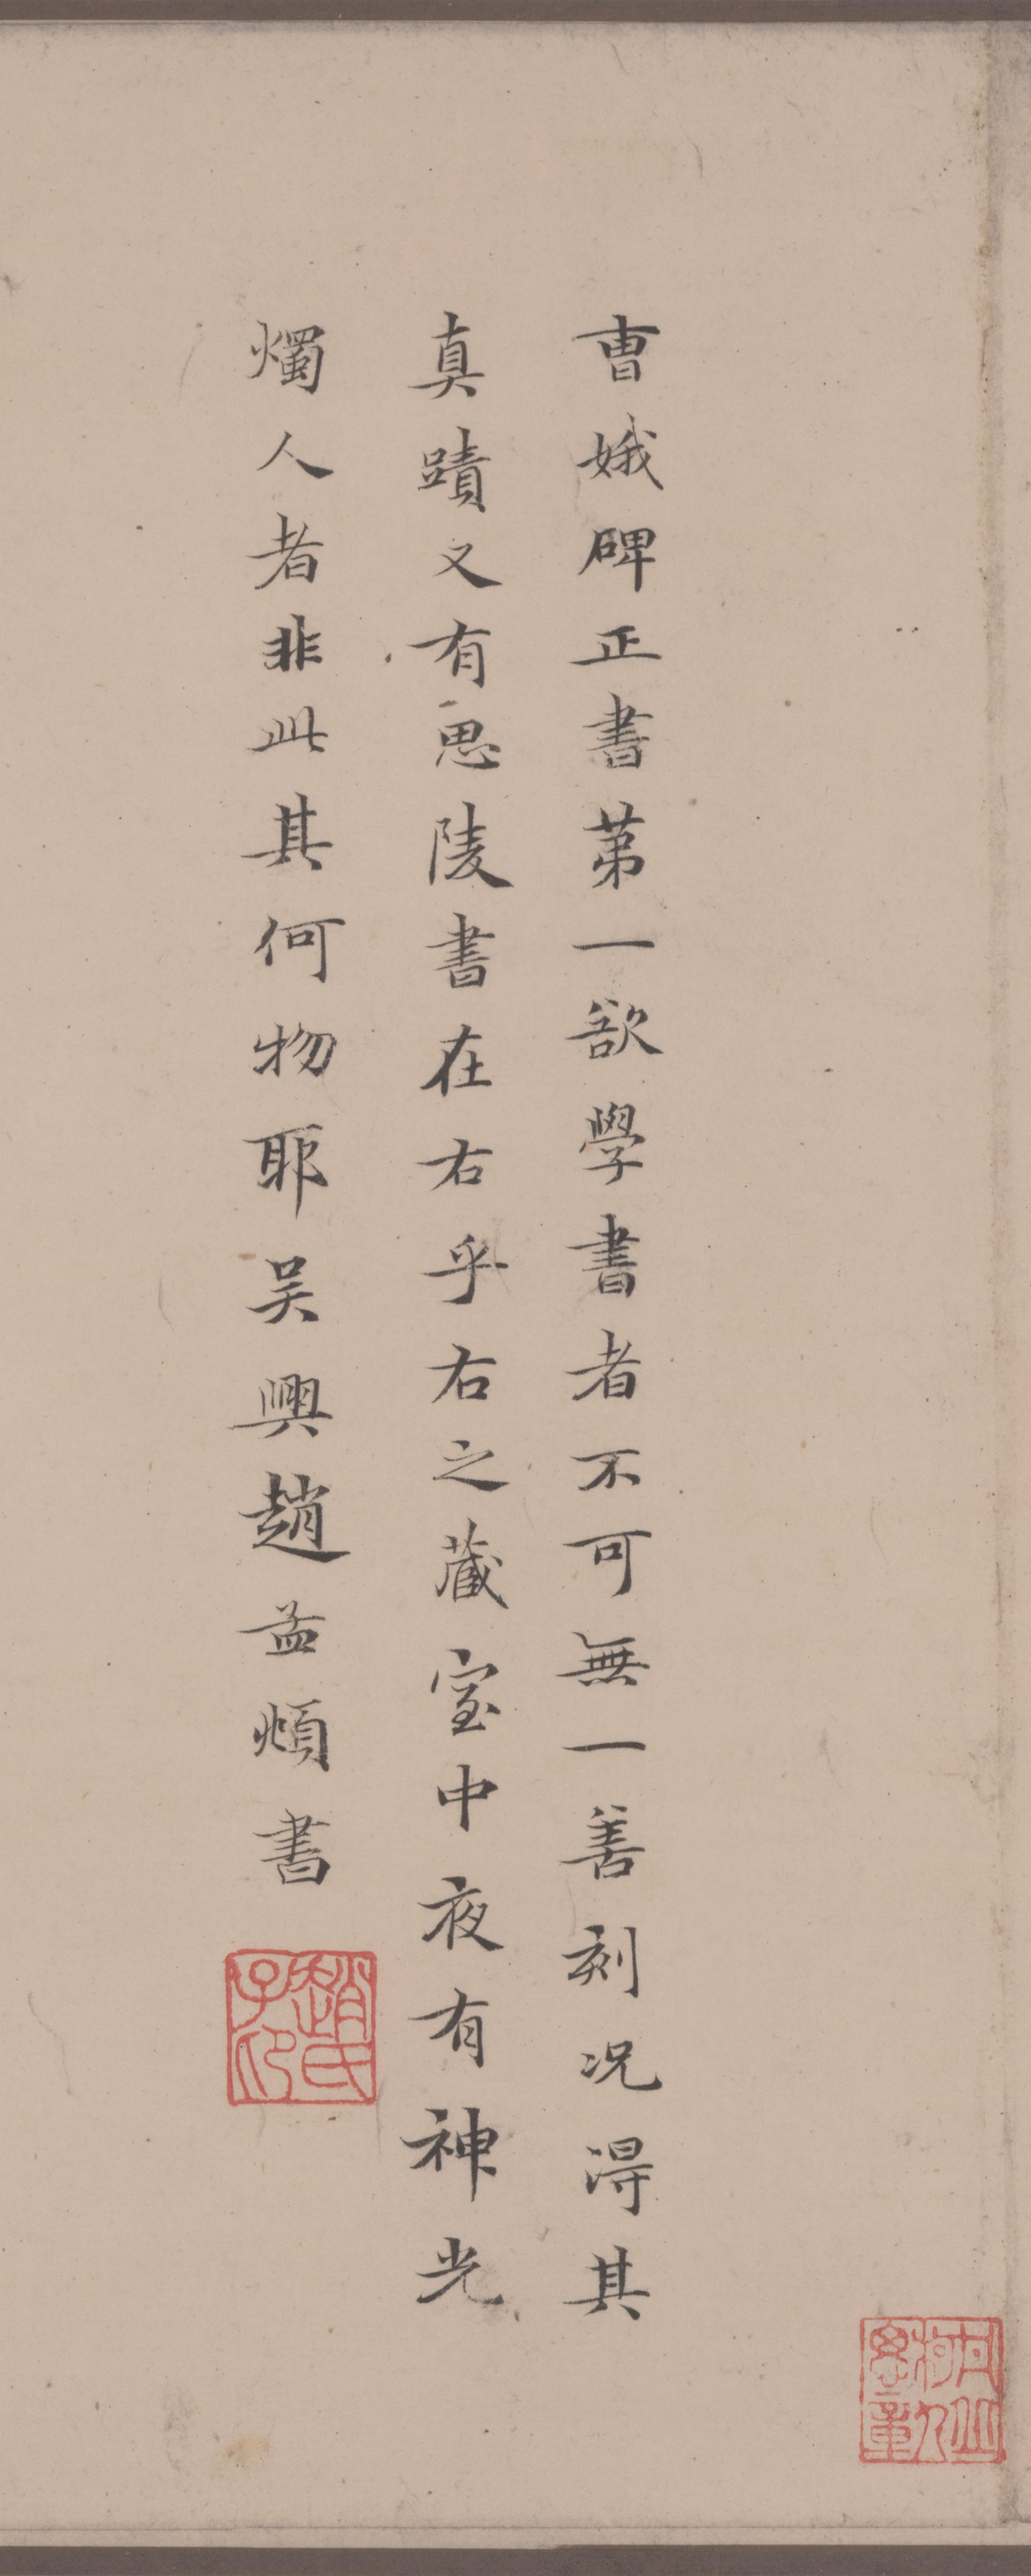 曺娥碑正書苐一欲學書者不可無一善刻况淂其
真蹟又有思陵書在右乎右之藏室中夜有神光
燭人者非此其何物耶吴興趙孟頫書
趙氏子印